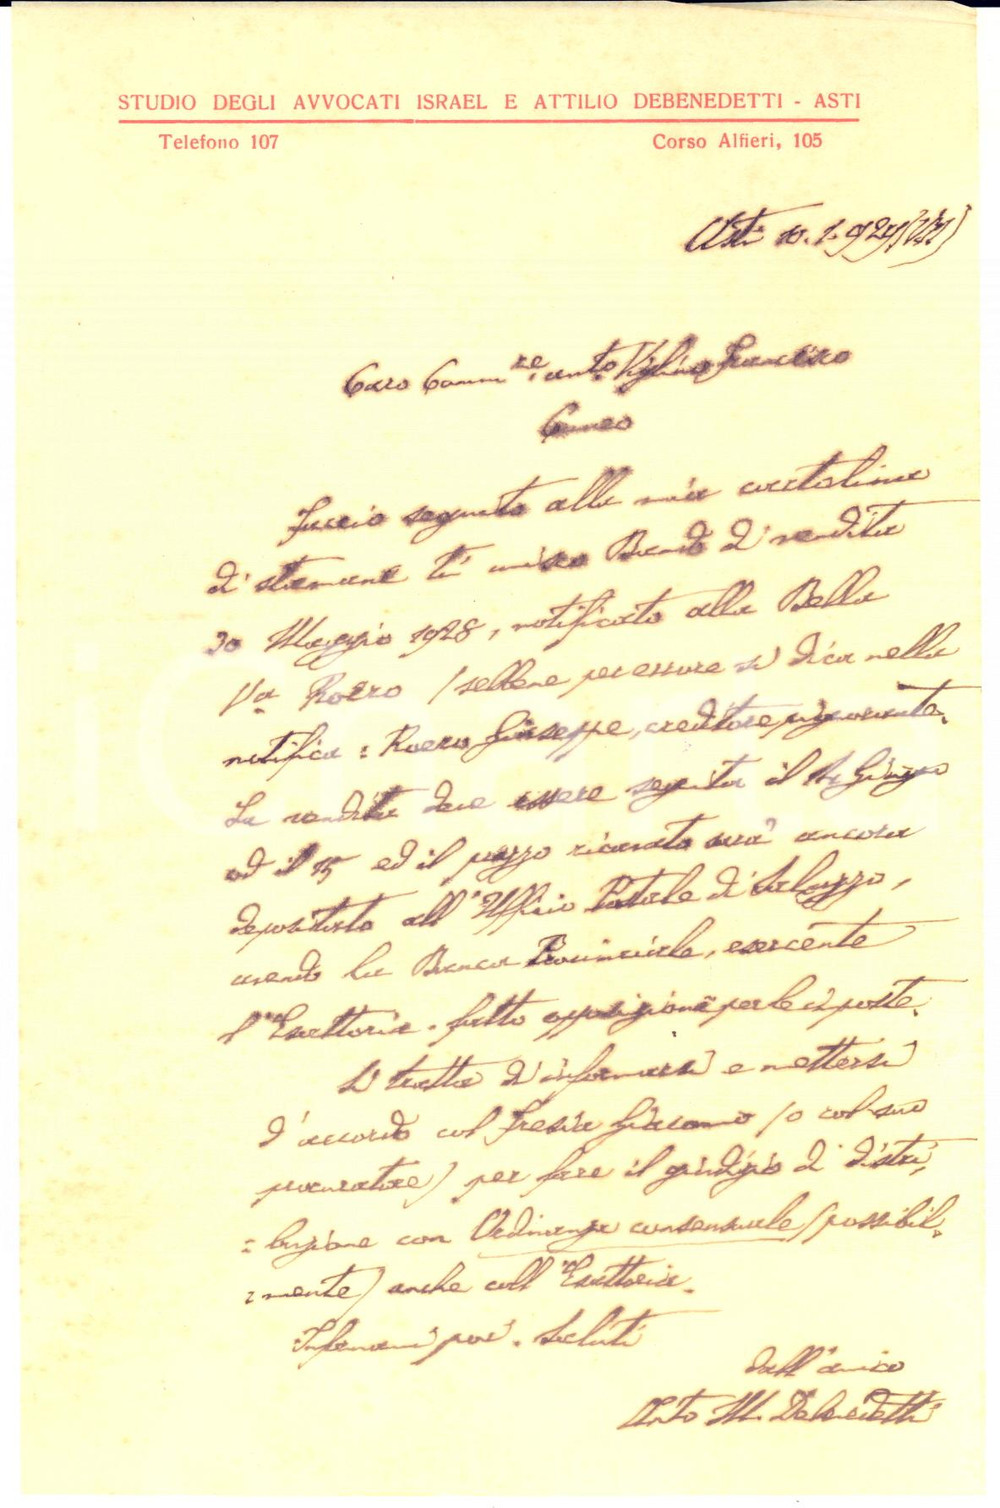 STUDIO DEGLI AVVOCATI ISRAEL E ATTILIO DEBENEDETTI - ASTI
Telefono 107 Corso Alfieri, 105
Asti 10. 1. 929 (VII)
Caro Comm.re avv.to Viglino Francesco
Cuneo
Faccio seguito alla mia cartolina
di stamane ti unisco Bando di vendita
30 Maggio 1928, notificato alla Bella
V.a Roero (sebbene per errore si dica nella
notifica = Roero Giuseppe, creditore pignorante.
La vendita deve essere seguita il 14 Giugno
od il 15 ed il prezzo ricavato sarà ancora
depositato all'Ufficio Postale di Saluzzo,
avendo la Banca Provinciale, esercente
l'Esattoria, fatto opposizione per le imposte.
Si tratta d'informarsi e mettersi
d'accordo col Fresia Giacomo (o col suo
procuratore) per fare il giudizio di distri,
= buzione con Ordinanza consensuale (possibil-
= mente) anche coll'Esattoria.
Informami poi. Saluti
dall'amico
Avv.to Debenedetti